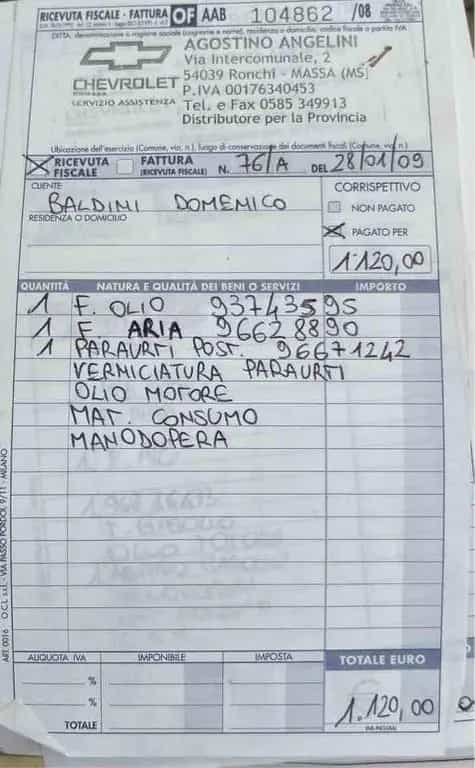 RICEVUTA FISCALE - FATTURA OF AAB 104862 /08
AGOSTINO ANGELINI
Via Intercomunale, 2
54039 Ronchi - MASSA (MS)
CHEVROLET P.IVA 00176340453
SERVIZIO ASSISTENZA Tel. e Fax 0585 349913
Distributore per la Provincia
Ubicazione dell'esercizio (Comune, via, n.), luogo di conservazione dei documenti fiscali (Comune, via, n.)
RICEVUTA FISCALE FATTURA (RICEVUTA FISCALE) N. 76/A DEL 28/01/09
CLIENTE CORRISPETTIVO
BALDINI DOMENICO NON PAGATO
RESIDENZA O DOMICILIO PAGATO PER
1.120,00
QUANTITÀ NATURA E QUALITÀ DEI BENI O SERVIZI IMPORTO
1 F. OLIO 93743595
1 F ARIA 96628890
1 PARAURTI POST. 96671242
VERNICIATURA PARAURTI
OLIO MOTORE
MAT. CONSUMO
MANODOPERA
ALIQUOTA IVA IMPONIBILE IMPOSTA TOTALE EURO
%
%
TOTALE 1.120,00
ART. 0016 O.C.L. s.r.l. - VIA PASSO PORDOI, 9/11 - MILANO